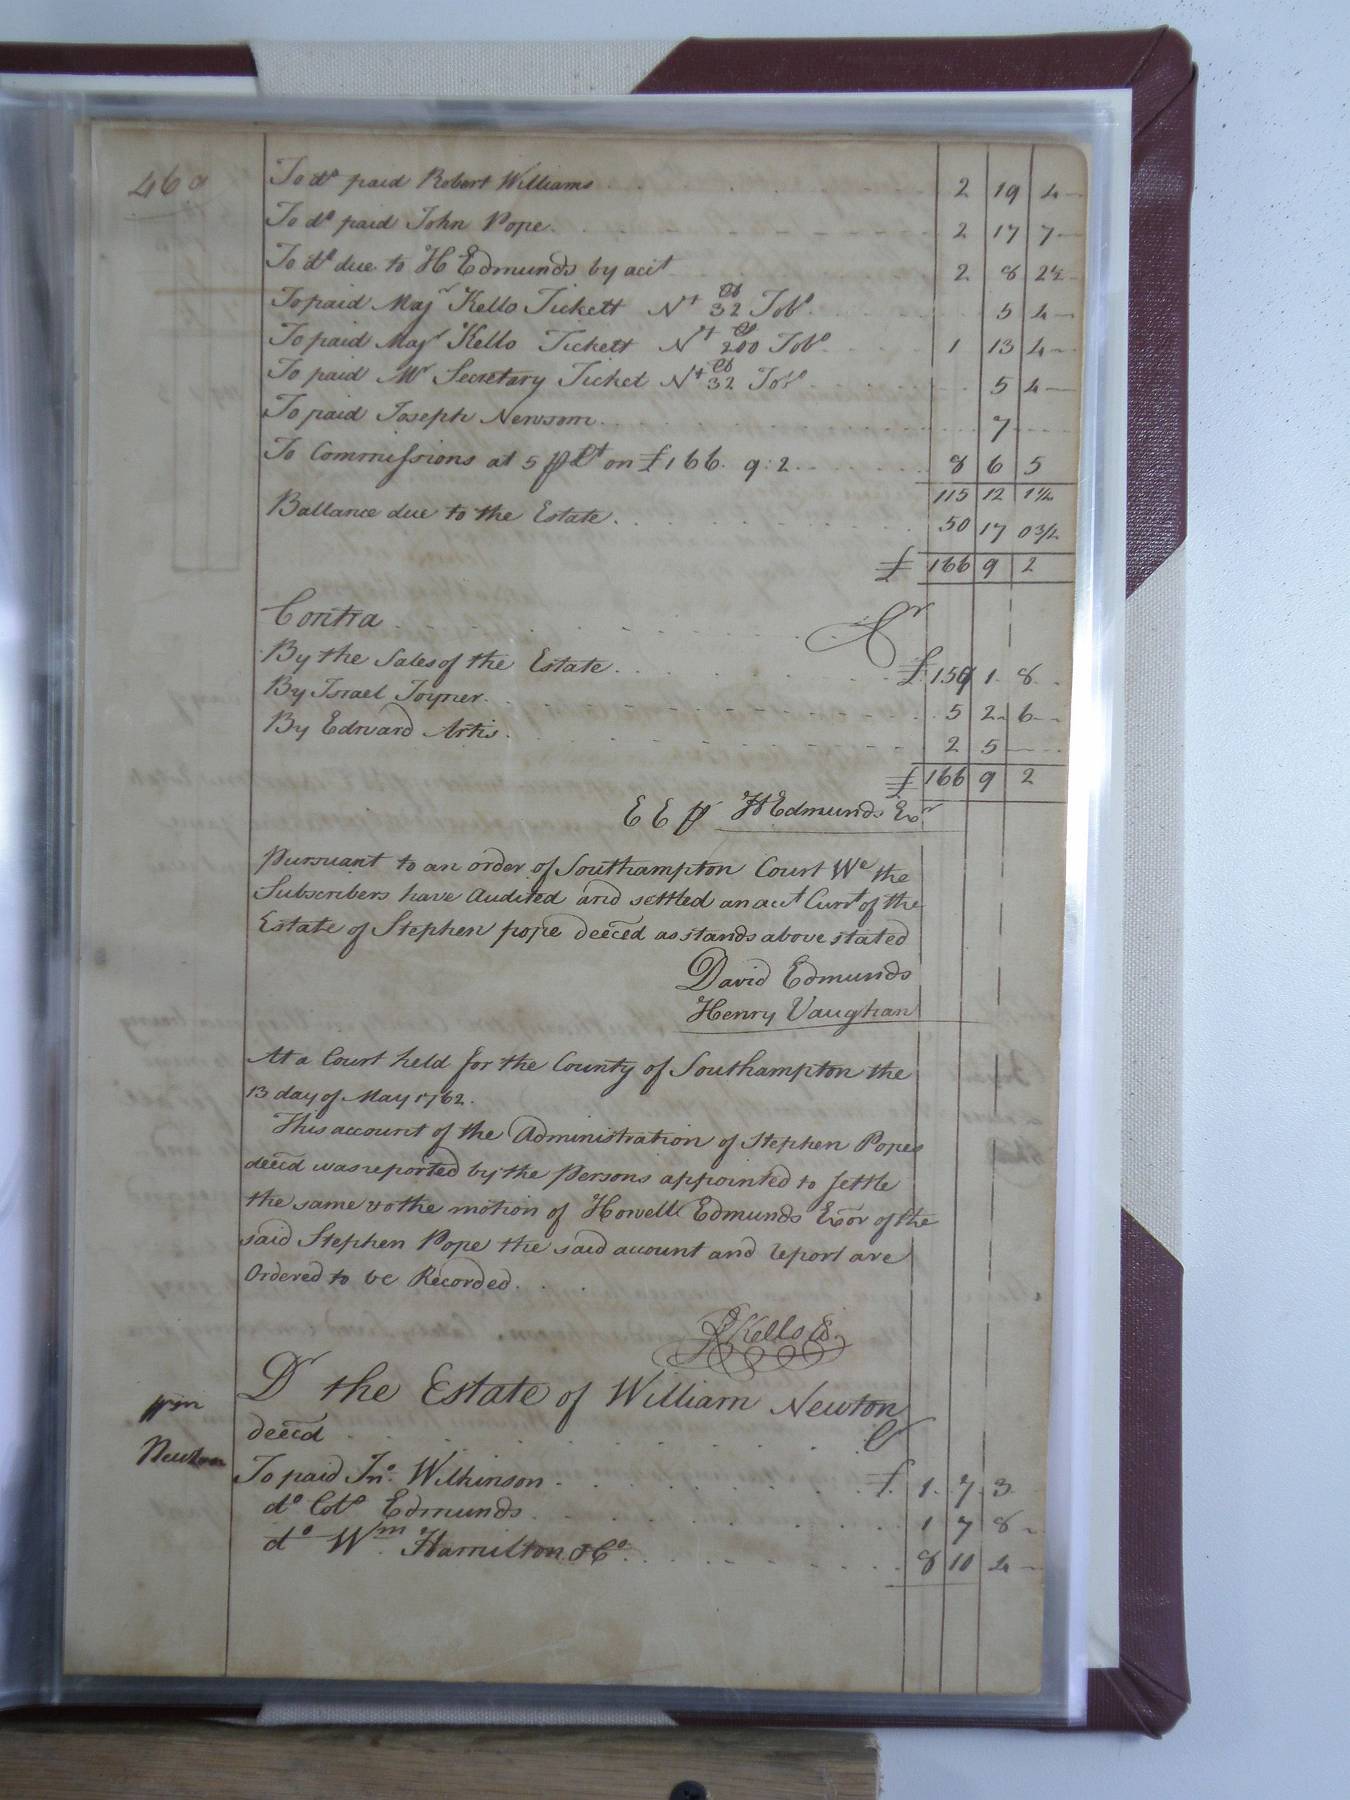 460
To do paid Robert Williams 2 19 4
To do paid John Pope 2 17 7
To do due to H Edmunds by acct 2 8 2½
To paid Majr Kello Tickett Nt 32 Tobo 5 4
To paid Majr Kello Tickett Nt 200 Tobo 1 13 4
To paid Mr Secretary Ticket Nt 32 Tobo 5 4
To paid Joseph Newsom 7
To Commissions at 5 p Ct on £166. 9: 2 8 6 5
115 12 1½
Ballance due to the Estate 50 17 0 3/2
£ 166 9 2
Contra Cr
By the Sales of the Estate £ 159 1 8
By Israel Joyner 5 2 6
By Edward Artis 2 5
£ 166 9 2
E E p H Edmunds Exr
Pursuant to an order of Southampton Court We the
Subscribers have Audited and settled an acct Currt of the
Estate of Stephen pope deced as stands above stated
David Edmunds
Henry Vaughan
At a Court held for the County of Southampton the
13 day of May 1762.
This account of the Administration of Stephen Popes
deced was reported by the Persons appointed to settle
the same & o the motion of Howell Edmunds Exor of the
said Stephen Pope the said account and report are
Ordered to be Recorded.
R Kello
Dr the Estate of William Newton
Wm
deced Cr
Newton
To paid Jno. Wilkinson £ 1 7 3
do Colo Edmunds 1 7 8
do Wm Hamilton & Co. 8 10 4